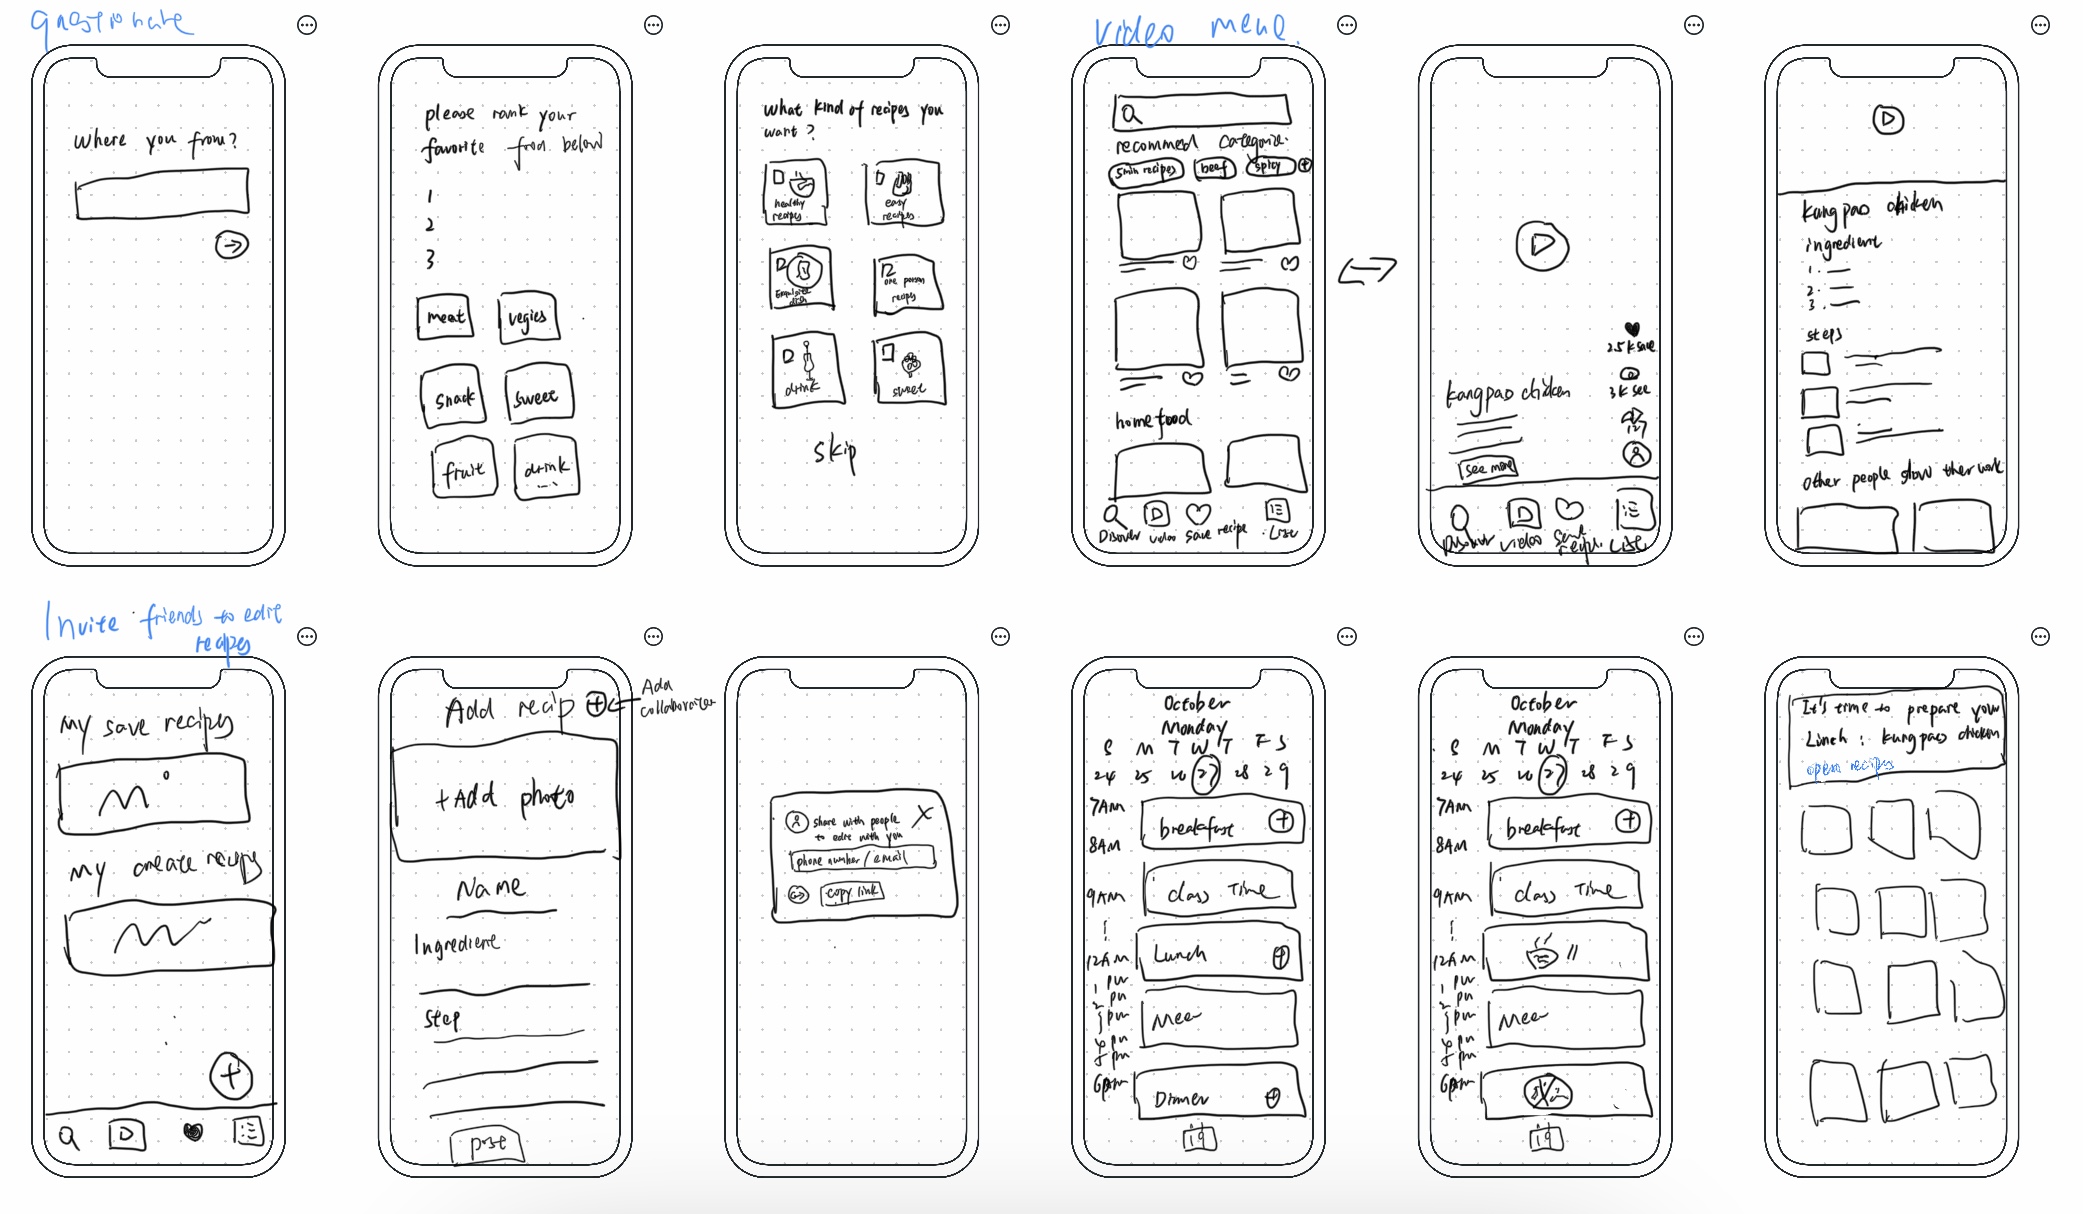 Where you from?
please rank your
favorite food below
1
2
3
meat
vegies
snack
sweet
fruit
drink
...
What kind of recipes you
want?
healthy
recipes
easy
recipes
Exquisite
dish
one person
recipes
drink
sweet
skip
video menu.
recommed categorize.
5min recipes
beef
spicy
home food
Disover
video
save recipe
List
2.5k save
3k see
kang pao chicken
see more
video
List
kang pao chicken
ingredient
1.
2.
3.
steps
other people show ther work
Invite friends to edit
recipes
My save recipes
My create recips
Add recip
Add
collaborator
+Add photo
Name
Ingredient
Step
post
share with people
to edit with you
X
phone number / email
copy link
October
Monday
S M T W T F S
24 25 26 27 28 29
7AM
breakfast
8AM
9AM
class Time
12AM
Lunch
1 pm
2 pm
3 pm
4 pm
5 pm
Meet
6pm
Dinner
19
October
Monday
S M T W T F S
24 25 26 27 28 29
7AM
breakfast
8AM
9AM
class Time
12AM
1 pm
2 pm
3 pm
4 pm
5 pm
Meet
6pm
19
It's time to prepare your
Lunch : kung pao chicken
open recipes